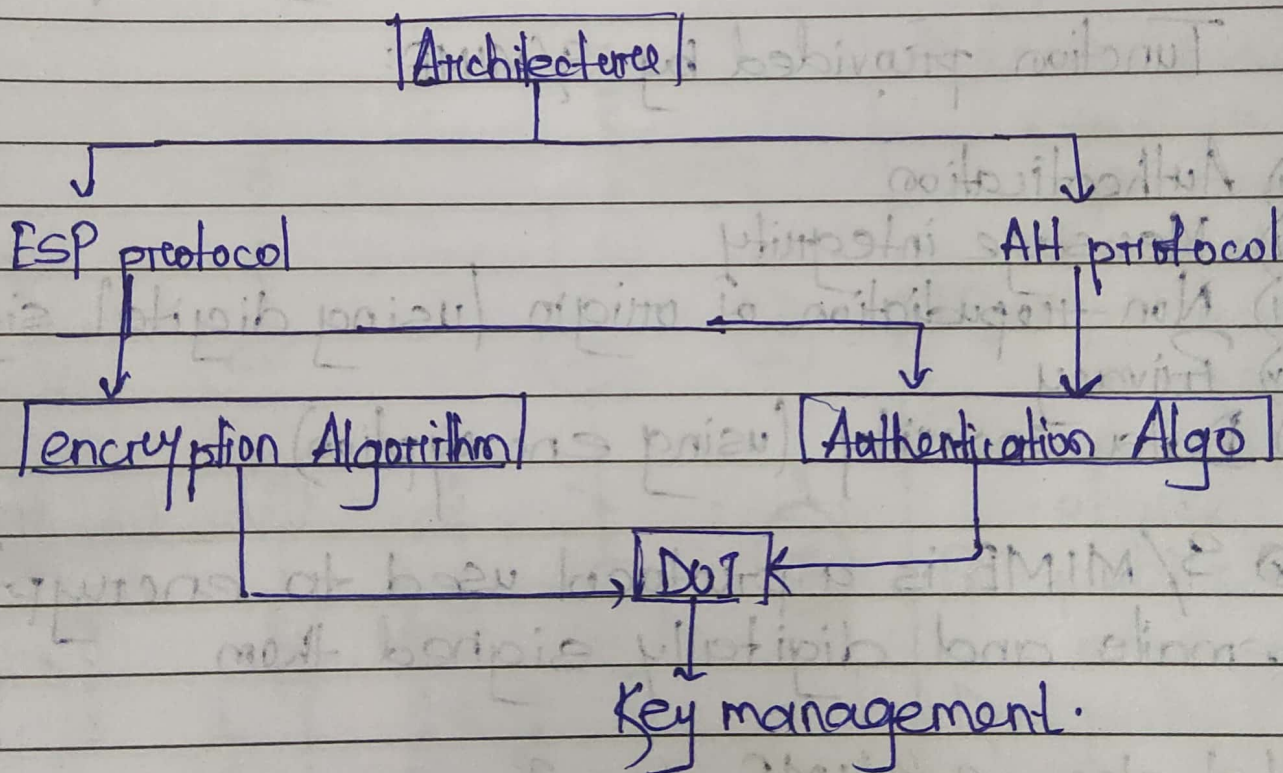 Architecture
ESP protocol AH protocol
encryption Algorithm Authentication Algo
DOI
Key management.